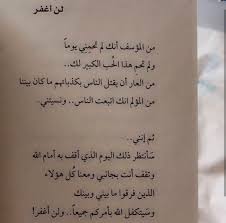 لن أغفر
من المؤسف أنك لم تحمِني يوماً
ولم تحمِ هذا الحُب الكبير لك..
من العار أن يقتل الناس بكذباتهم ما كان بيننا
من المؤلم انك اتبعت الناس.. ونسيتني.
ثم إنني..
سأنتظر ذلك اليوم الذي أقف به أمام الله
وتقف أنت بجانبي ومعنا كُل هؤلاء
الذين فرقوا ما بيني وبينك
وسيتكفل الله بأمركم جميعاً.. ولن أغفر!